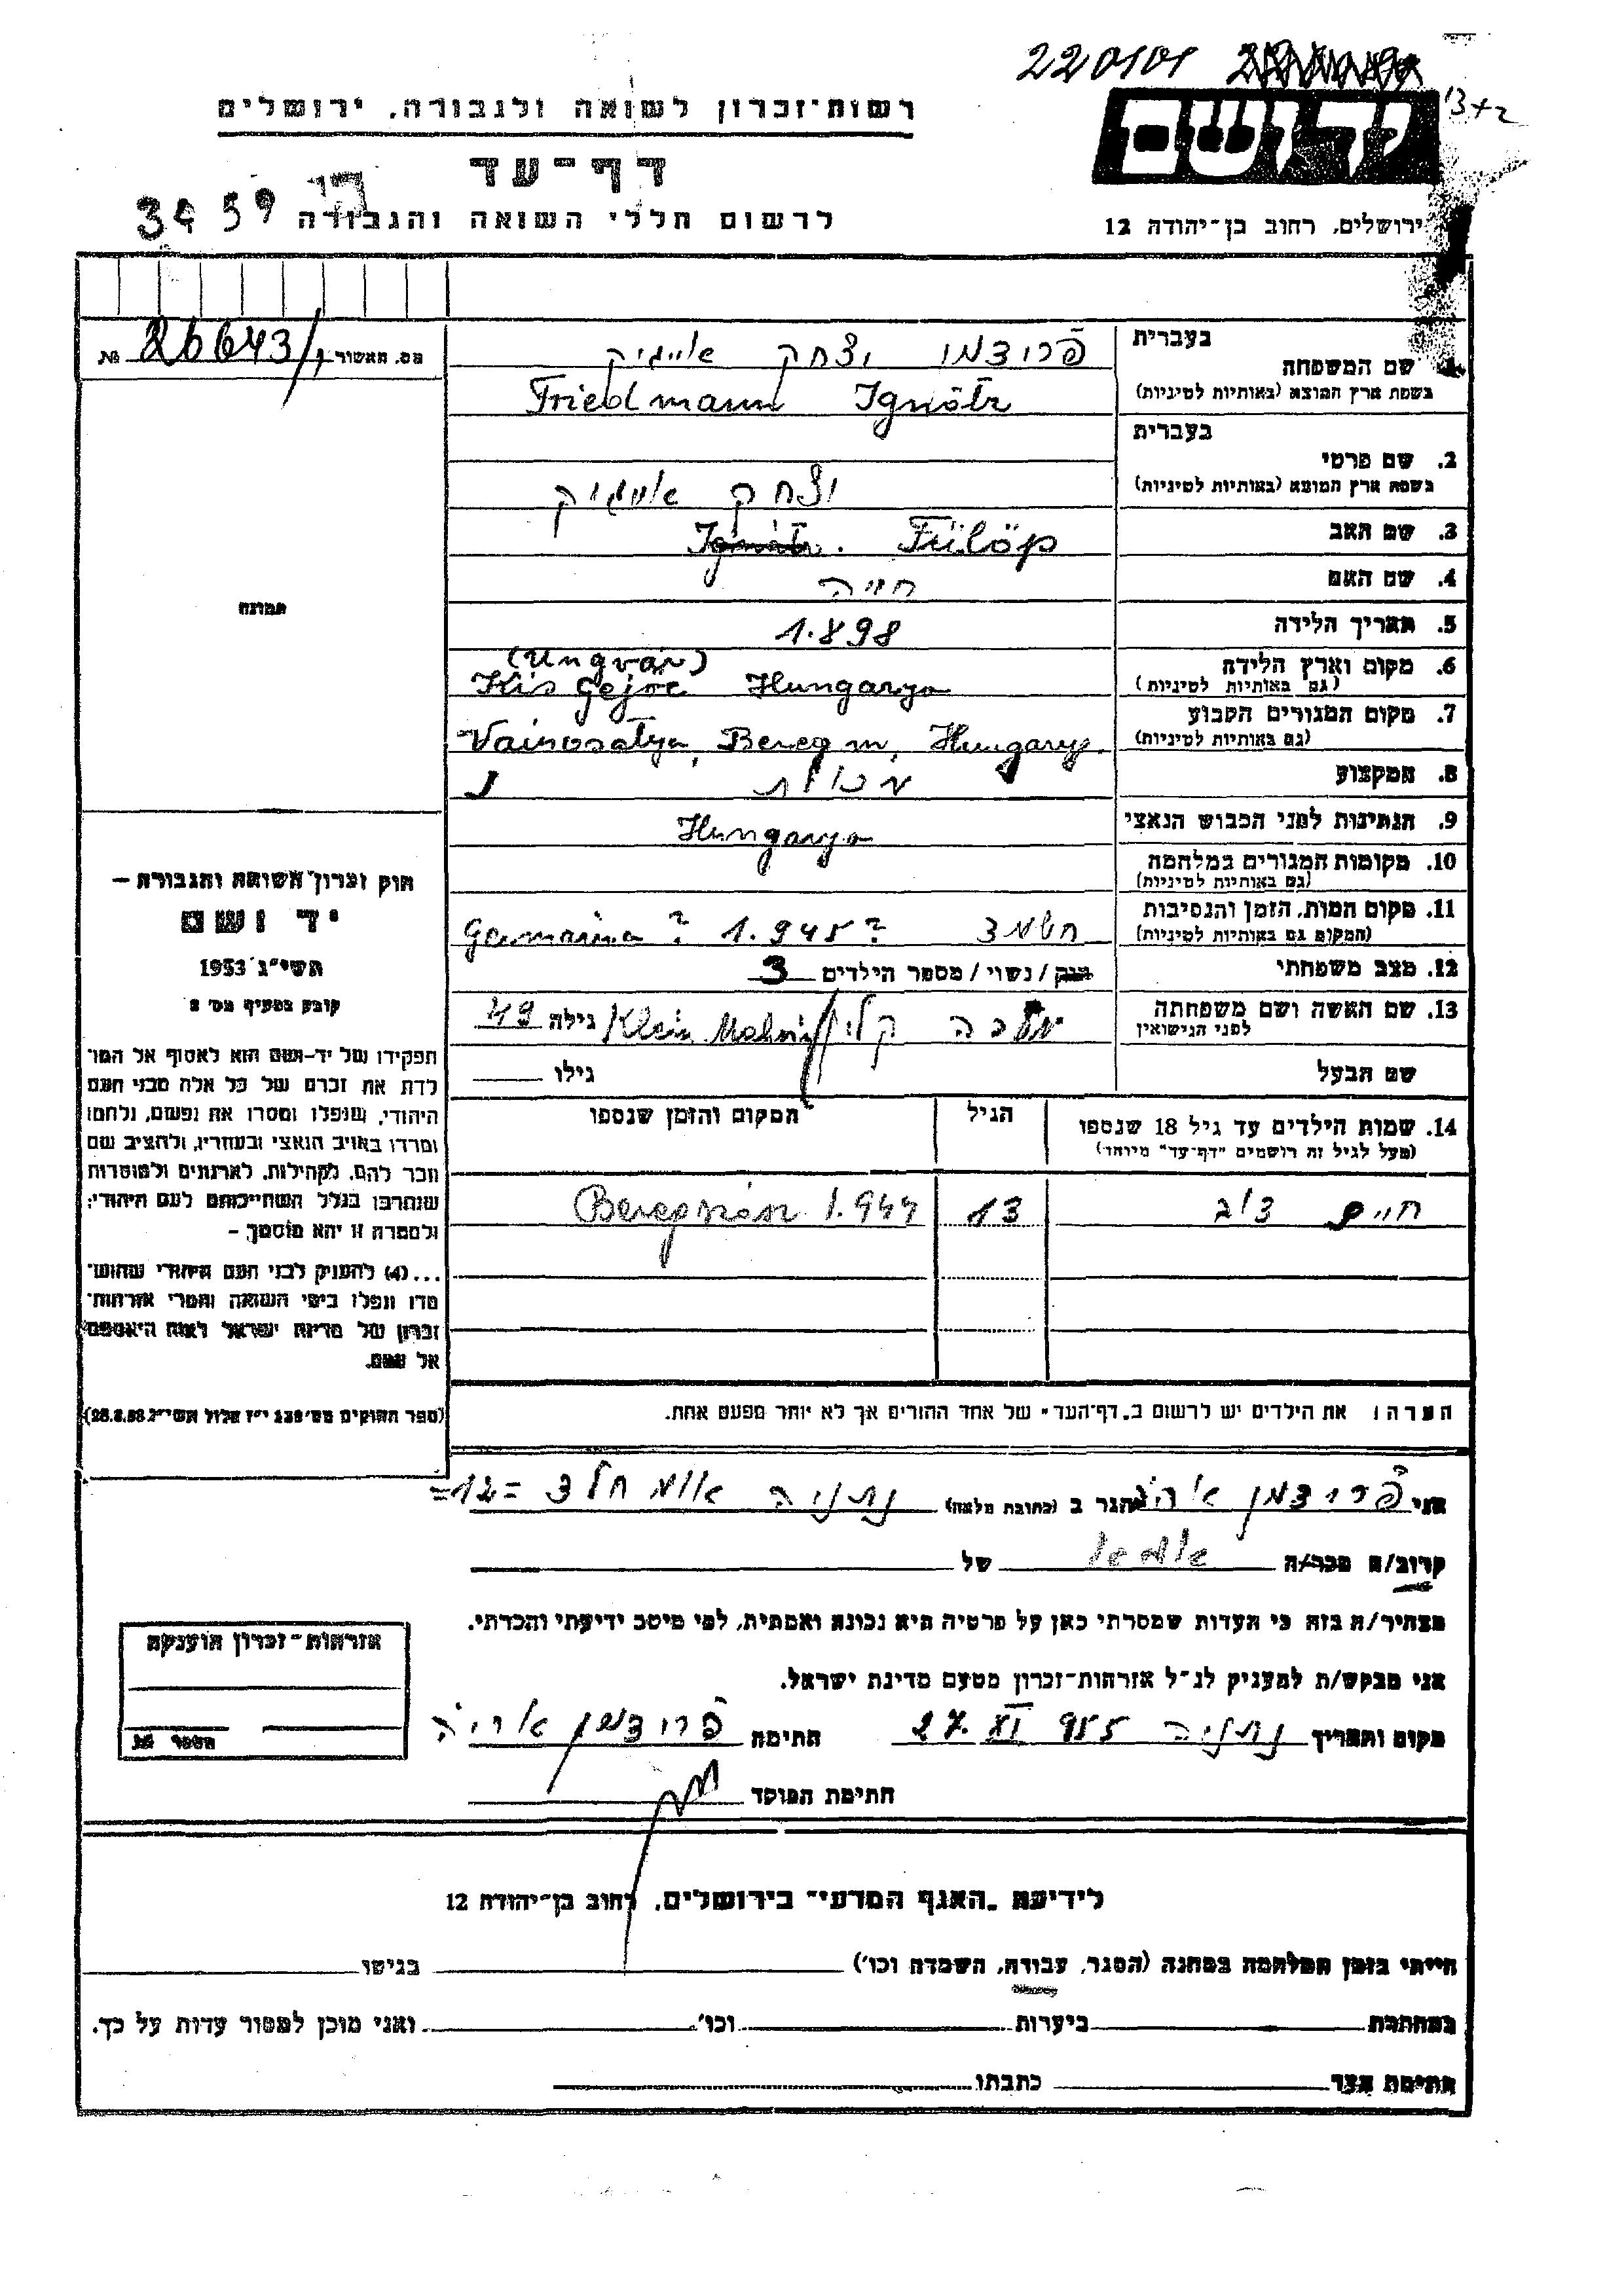 220101
רשות־זכרון לשואה ולגבורה, ירושלים
יד ושם
דף־עד
לרשום חללי השואה והגבורה
3459
ירושלים, רחוב בן־יהודה 12
מס. האשור № 26643/1
בעברית פרידמן יצחק אייזיק
1. שם המשפחה
בשפת ארץ המוצא (באותיות לטיניות) Friedmann Ignátz
בעברית
2. שם פרטי
בשפת ארץ המוצא (באותיות לטיניות) יצחק אייזיק
3. שם האב Fülöp
4. שם האם חיה
5. תאריך הלידה 1.898
6. מקום וארץ הלידה (Ungvár)
(גם באותיות לטיניות) Kis Gejőc Hungarya
7. מקום המגורים הקבוע
(גם באותיות לטיניות) Bereg m, Hungarya
8. המקצוע
9. הנתינות לפני הכבוש הנאצי Hungarya
10. מקומות המגורים במלחמה
(גם באותיות לטיניות)
11. מקום המות, הזמן והנסיבות
(המקום גם באותיות לטיניות) Germania ? 1.945?
12. מצב משפחתי רווק / נשוי / מספר הילדים 3
13. שם האשה ושם משפחתה קליין Klein גילה 49
לפני הנישואין
שם הבעל גילו
14. שמות הילדים עד גיל 18 שנספו הגיל המקום והזמן שנספו
(מעל לגיל זה רושמים "דף־עד" מיוחד)
חיים 13 1.944
הערה: את הילדים יש לרשום ב"דף־העד" של אחד ההורים אך לא יותר מפעם אחת.
תמונה
חוק זכרון השואה והגבורה –
יד ושם
תשי"ג 1953
קובע בסעיף מס' 2
תפקידו של יד־ושם הוא לאסוף אל המו־
לדת את זכרם של כל אלה מבני העם
היהודי, שנפלו ומסרו את נפשם, נלחמו
ומרדו באויב הנאצי ובעוזריו, ולהציב שם
וזכר להם, לקהילות, לארגונים ולמוסדות
שנחרבו בגלל השתייכותם לעם היהודי;
ולמטרה זו יהא מוסמך –
...(4) להעניק לבני העם היהודי שהוש־
מדו ונפלו בימי השואה והמרי אזרחות־
זכרון של מדינת ישראל לאות היאספם
אל עמם.
אני פרידמן אריה הגר ב (כתובת מלאה) נתניה =12=
קרוב/ה מכר/ה של
מצהיר/ה בזה כי העדות שמסרתי כאן על פרטיה היא נכונה ואמתית, לפי מיטב ידיעתי והכרתי.
אני מבקש/ת להעניק לנ"ל אזרחות־זכרון מטעם מדינת ישראל.
מקום ותאריך נתניה 27. XI 955 חתימה פרידמן אריה
חתימת הפוקד
אזרחות־זכרון הוענקה
מספר №
לידיעת "האגף המדעי" בירושלים, רחוב בן־יהודה 12
הייתי בזמן המלחמה במחנה (הסגר, עבודה, השמדה וכו') בגיטו
במחתרת ביערות וכו' ואני מוכן למסור עדות על כך.
חתימת העד כתבתו